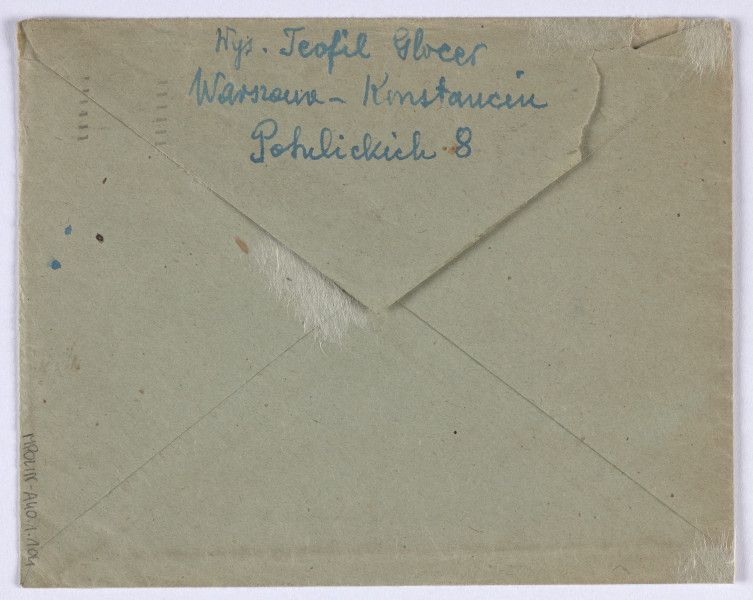 Wys. Teofil Glocer
Warszawa - Konstancin
Potulickich 8
MPOLIN-A40.1.104